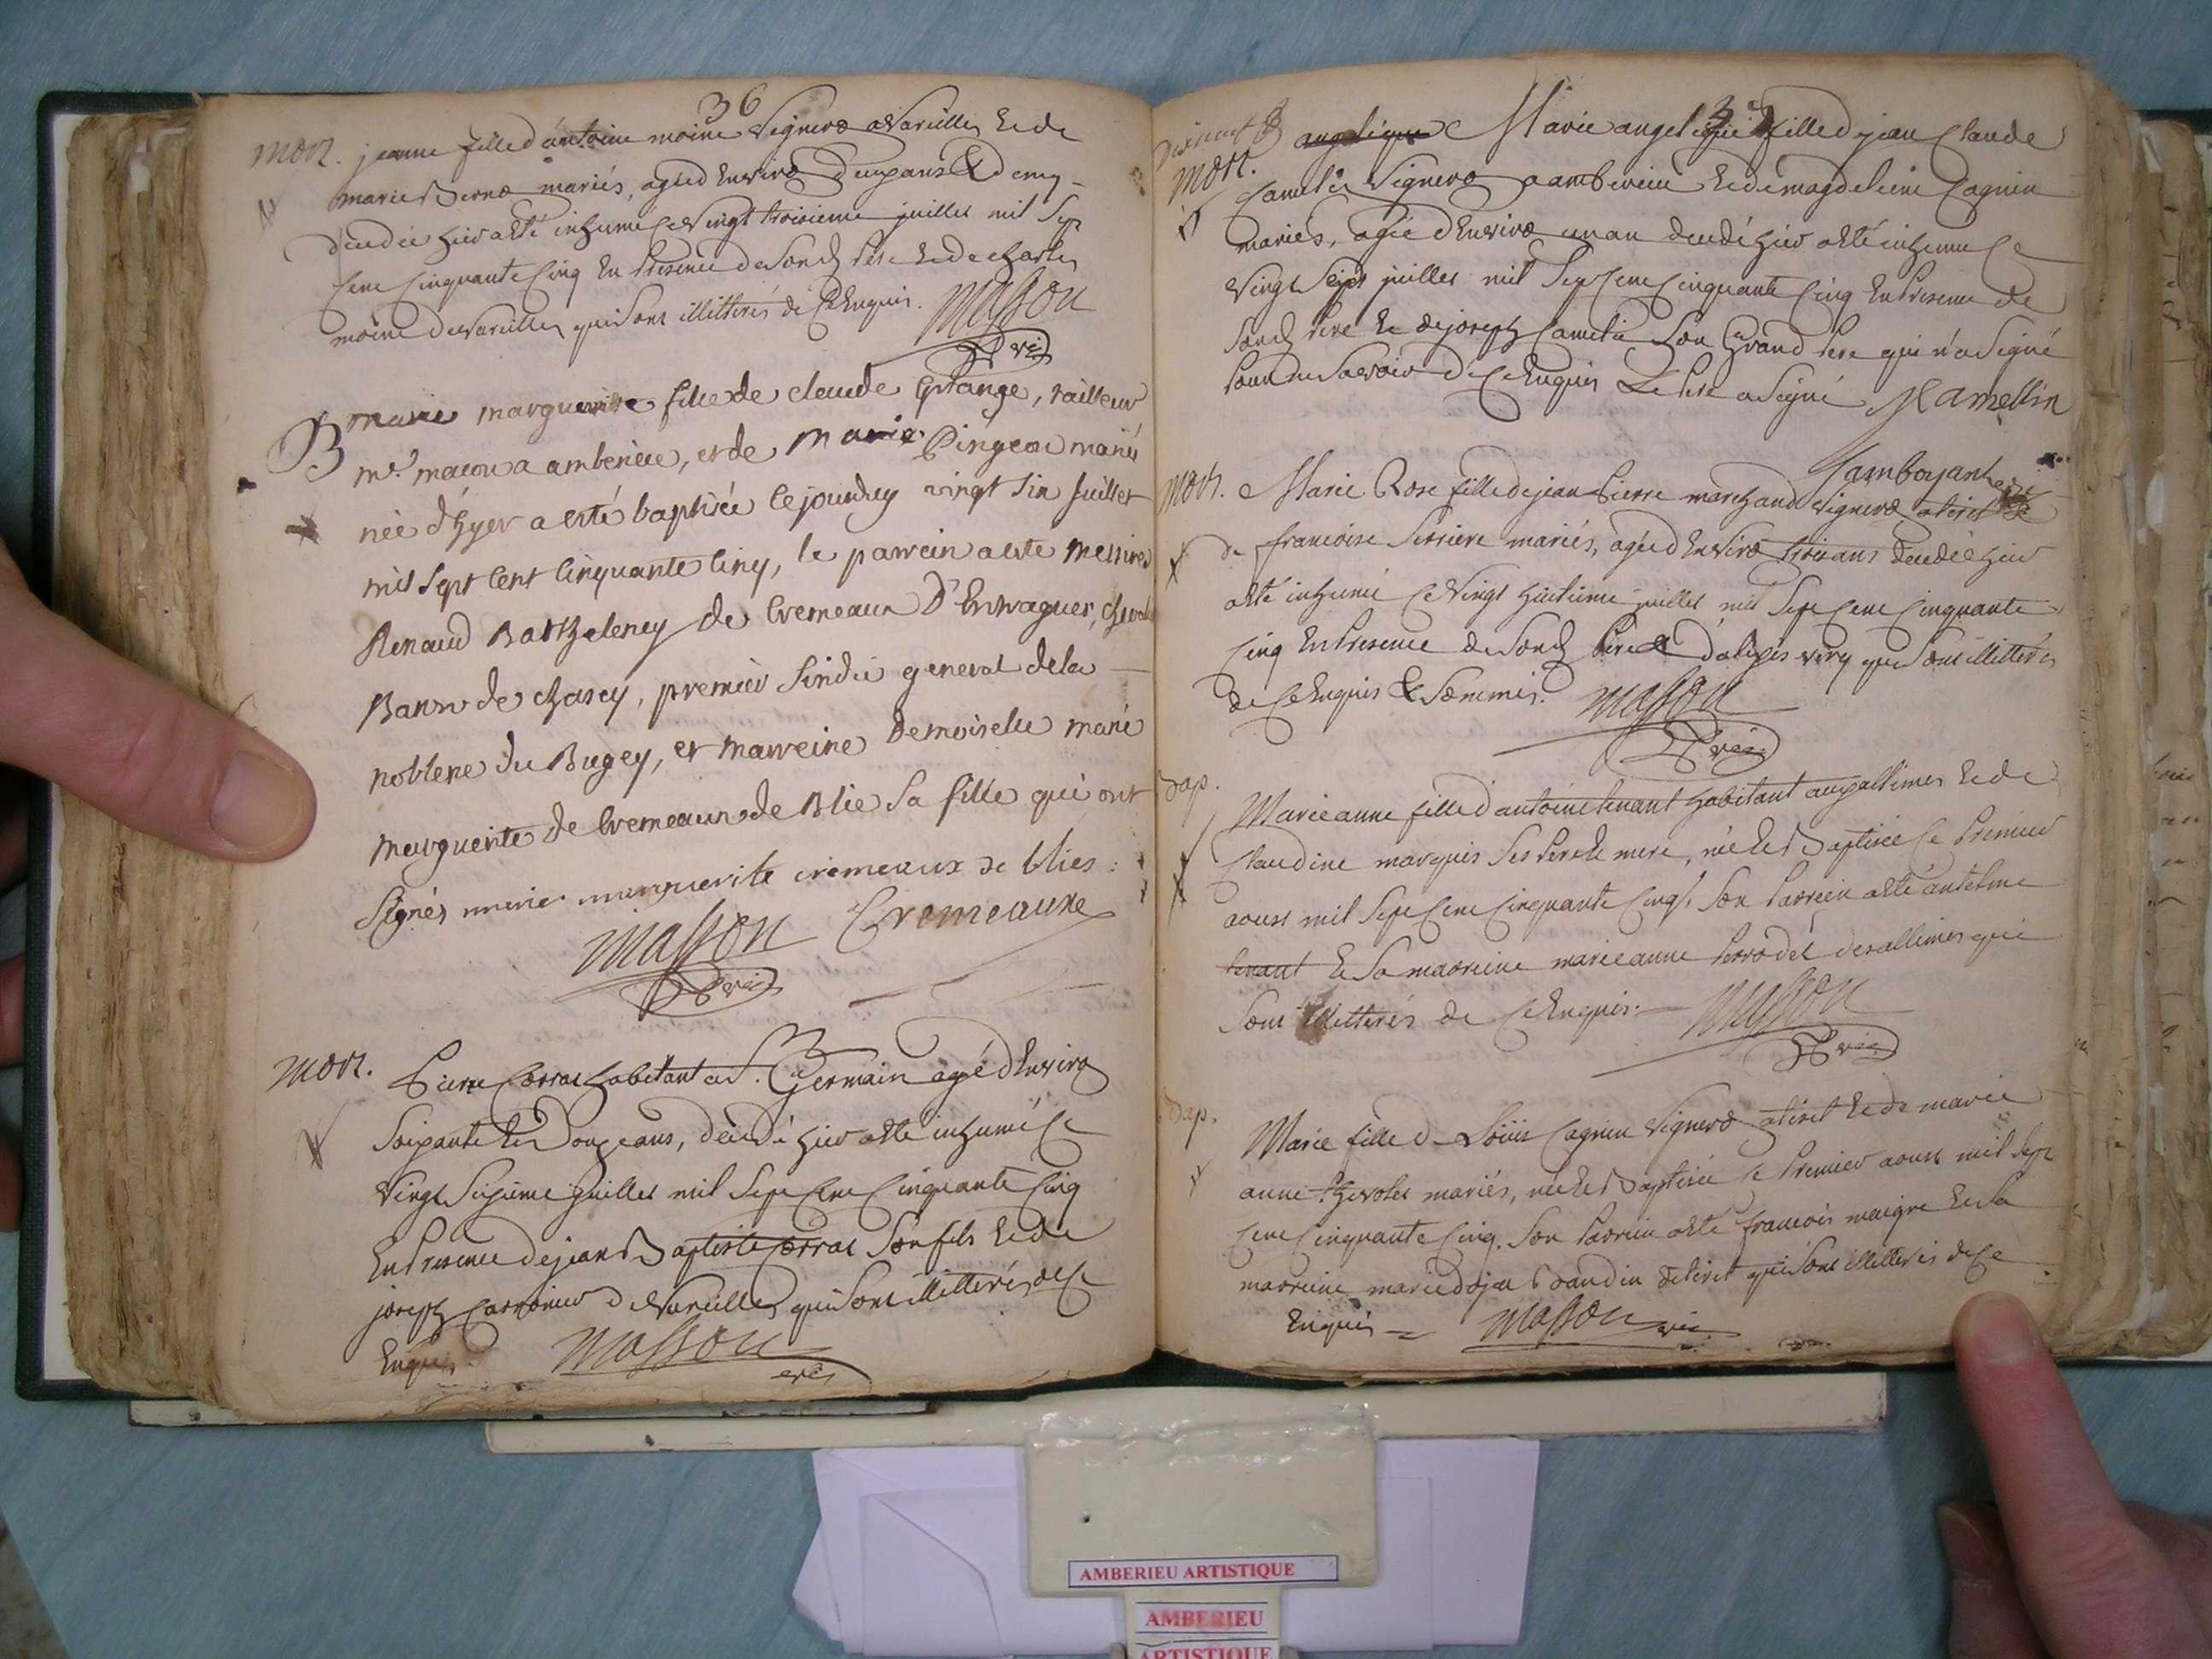 36
mort. jeanne fille d'antoine moine vigneron a Vareilles & de
marie Berno mariés, agée d'Environ deux ans & demy
decedée hier a eté inhumé ce vingt troisieme juillet mil sept
cent cinquante cinq En presence de son d. pere & de charles
moine de vareilles qui sont illitterés de ce Enquis. Masson
B marie marguerite fille de claude grange, tailleur
me. macon a amberieu, et de marie Pingeon mariés
née d'hyer a esté baptisée cejourduy vingt six Juillet
mil sept cent cinquante cinq, le parrein a esté messire
Renaud Barthelemy de Cremeaux D'Entragues,
Baron de chasey, premier sindic general de la
noblesse du Bugey, et marreine Demoiselle marie
marguerite de Cremeaux de Blie sa fille qui ont
signés marie marguerite cremeaux de blies
Masson Cremeaux
mort. Pierre Corras habitant a St. Germain agé d'Environ
soixante & Douze ans, decedé hier a eté inhumé ce
vingt sixieme Juillet mil sept cent cinquante cinq
En presence de jean Baptiste Corras son fils & de
joseph Carronier de Vareilles qui sont illitterés de ce
Enquis Masson
37
angelique Marie angelique fille de jean Claude
mort.
Camelin vigneron a amberieu & de magdeleine Cagnin
mariés, agée d'Environ un an decedé hier a eté inhumé ce
vingt sept juillet mil sept cent cinquante cinq En presence de
son d. pere & de joseph Camelin son Grand pere qui n'a signé
pour ne savoir de ce Enquis Le pere a signé J Camellin
Jamboyant
mort. Marie Rose fille de jean Pierre marchand vigneron a tiret &
de francoise Serriere mariés, agée d'Environ trois ans decedée hier
a eté inhumé ce vingt huitieme juillet mil sept cent cinquante
cinq En presence de son d. pere & d'alexis very qui sont illitterés
de ce Enquis & sommés. Masson
Bap.
Marie anne fille d'antoine tenant habitant aux allimes & de
Claudine marquis ses pere & mere, née & Baptisée ce premier
aoust mil sept cent cinquante cinq. son parrein a eté antelme
tenant & sa marreine marie anne perrodet des allimes qui
sont illitterés de ce Enquis. Masson
Bap.
Marie fille de Loüis Cagnin vigneron a tiret & de marie
anne Thevolet mariés, née & Baptisée ce premier aoust mil sept
cent cinquante cinq. son parrein a eté francois maigre & sa
marreine marie Baudin de tiret qui sont illitterés de ce
Enquis Masson
AMBERIEU ARTISTIQUE
AMBERIEU
ARTISTIQUE